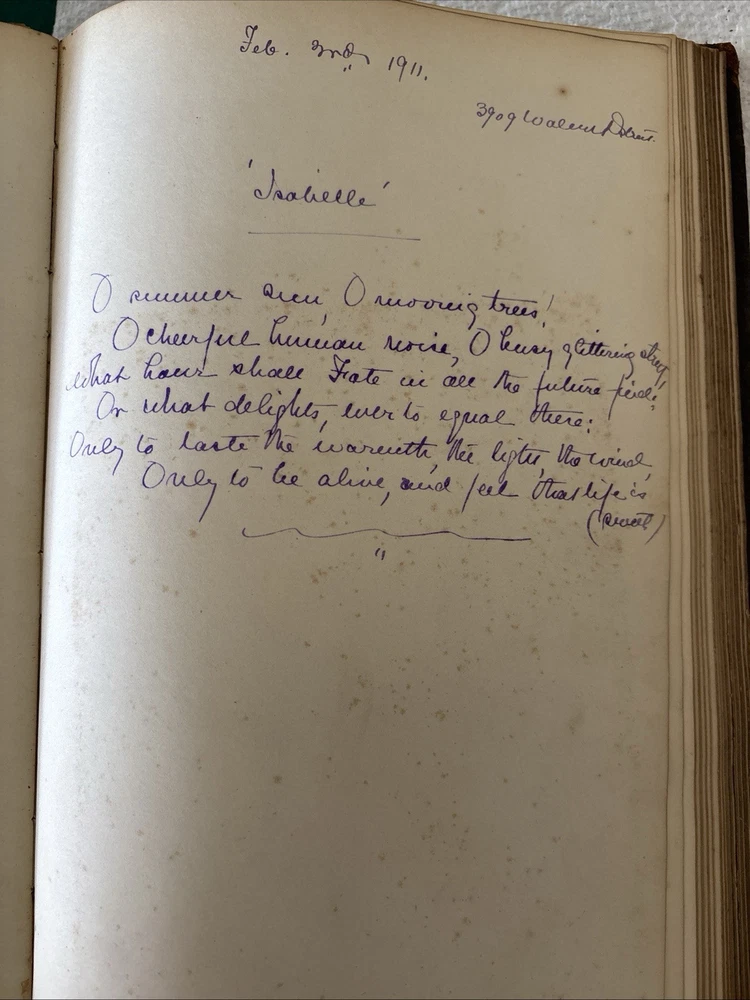 Feb. 2nd 1911.
3909 Walnut Street.
'Isabelle'
O summer sun, O moving trees!
O cheerful human noise, O busy glittering street!
What hour shall Fate in all the future find,
Or what delights, ever to equal these:
Only to taste the warmth, the light, the wind,
Only to be alive, and feel that life is
(sweet)